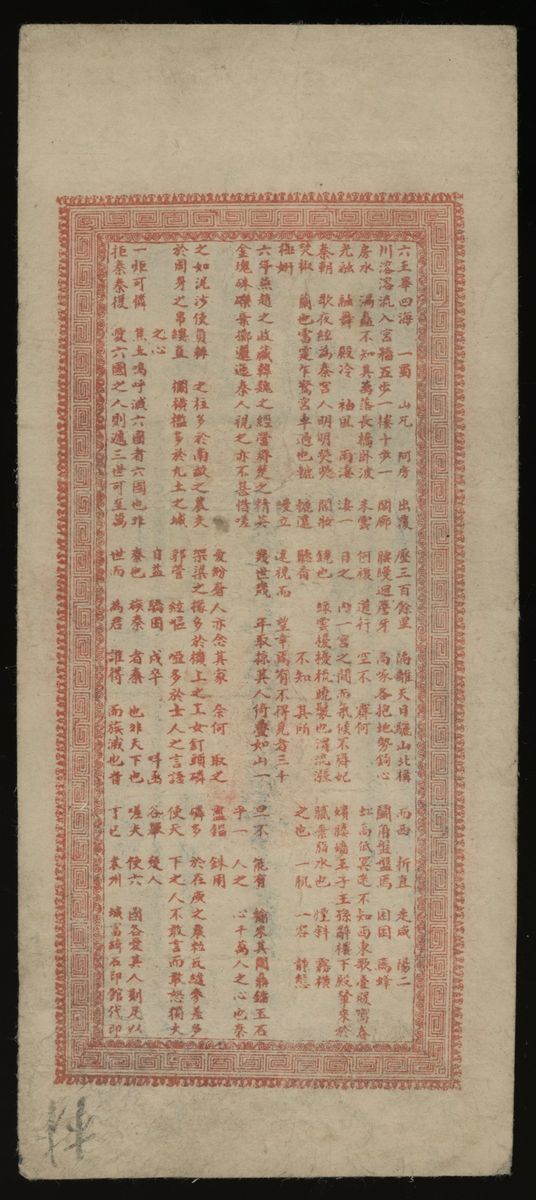 六王畢四海 一蜀 山兀 阿房 出覆 壓三百餘里 隔離天日驪山北構 而西 折直 走咸 陽二
川溶溶流入宮牆五步一樓十步一 閣廊 腰縵迴簷牙 高啄各抱地勢鉤心 鬬角盤盤焉 囷囷 焉蜂
房水 渦矗不知其為落長橋臥波 未雲 何復 道行 空不 霽何 虹高低冥迷不知西東歌臺暖響春
光融 融舞 殿冷 袖風 雨淒 淒一 日之 內一宮之間而氣候不齊妃 嬪媵嬙王子王孫辭樓下殿輦來於
秦朝 歌夜絃為秦宮人明明熒熒 開妝 鏡也 綠雲擾擾梳曉鬟也渭流漲 膩棄脂水也 煙斜 霧橫
焚椒 蘭也雷霆乍驚宮車過也轆 轆遠 聽杳 不知 其所 之也 一肌 一容 靜態
極妍 縵立 遠視而 望幸焉有不得見者三十
六年燕趙之收藏韓魏之經營齊楚之精英 幾世幾 年取掠其人倚疊如山一 旦不 能有 輸來其間鼎鐺玉石
金塊珠礫棄擲邐迤秦人視之亦不甚惜嗟 乎一 人之 心千萬人之心也秦
愛紛奢人亦念其家 奈何 取之 盡錙 銖用
之如泥沙使負棟 之柱多於南畝之農夫 架梁之椽多於機上之工女釘頭磷 磷多 於在庾之粟粒瓦縫參差多
於周身之帛縷直 欄橫檻多於九土之城 郭管 絃嘔 啞多於士人之言語 使天 下之人不敢言而敢怒獨夫
之心 日益 驕固 戍卒 叫函 谷舉 楚人
一炬可憐 焦土嗚呼滅六國者六國也非 秦也 族秦 者秦 也非天下也 嗟夫 使六 國各愛其人則足以
拒秦秦復 愛六國之人則遞三世可至萬 世而 為君 誰得 而族滅也昔 丁巳 袁州 城富琦石印館代印